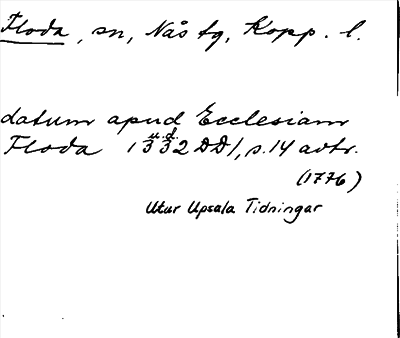 Floda, sn, Nås tg, Kopp. l.
datum apud Ecclesiam
Floda 1332 DD1, s.14 avtr.
u. d.
(1776)
Utur Upsala Tidningar